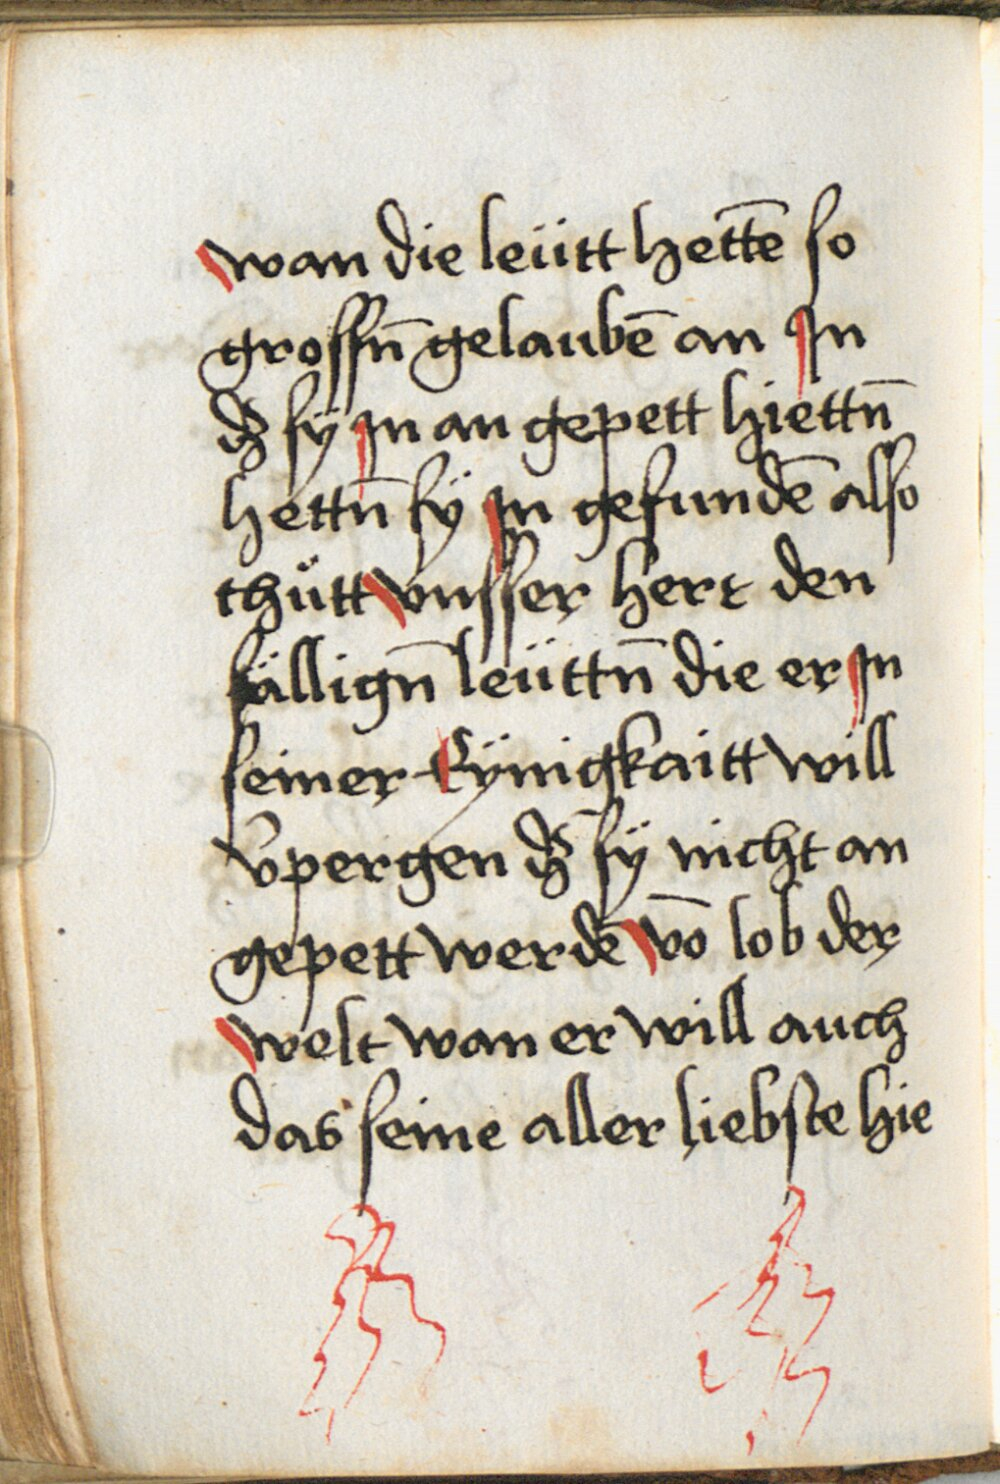 wan die leütt hettē so
grossn̄ gelaubē an In
dz sÿ In an gepett hiettn̄
hettn̄ sÿ In gefundē also
thůtt vnsser herr den
sällign̄ leüttn̄ die er In
seiner Eÿnigkaitt will
v̄pergen dz sÿ nicht an
gepett werdē vō lob der
welt wan er will auch
das seine aller liebste hie